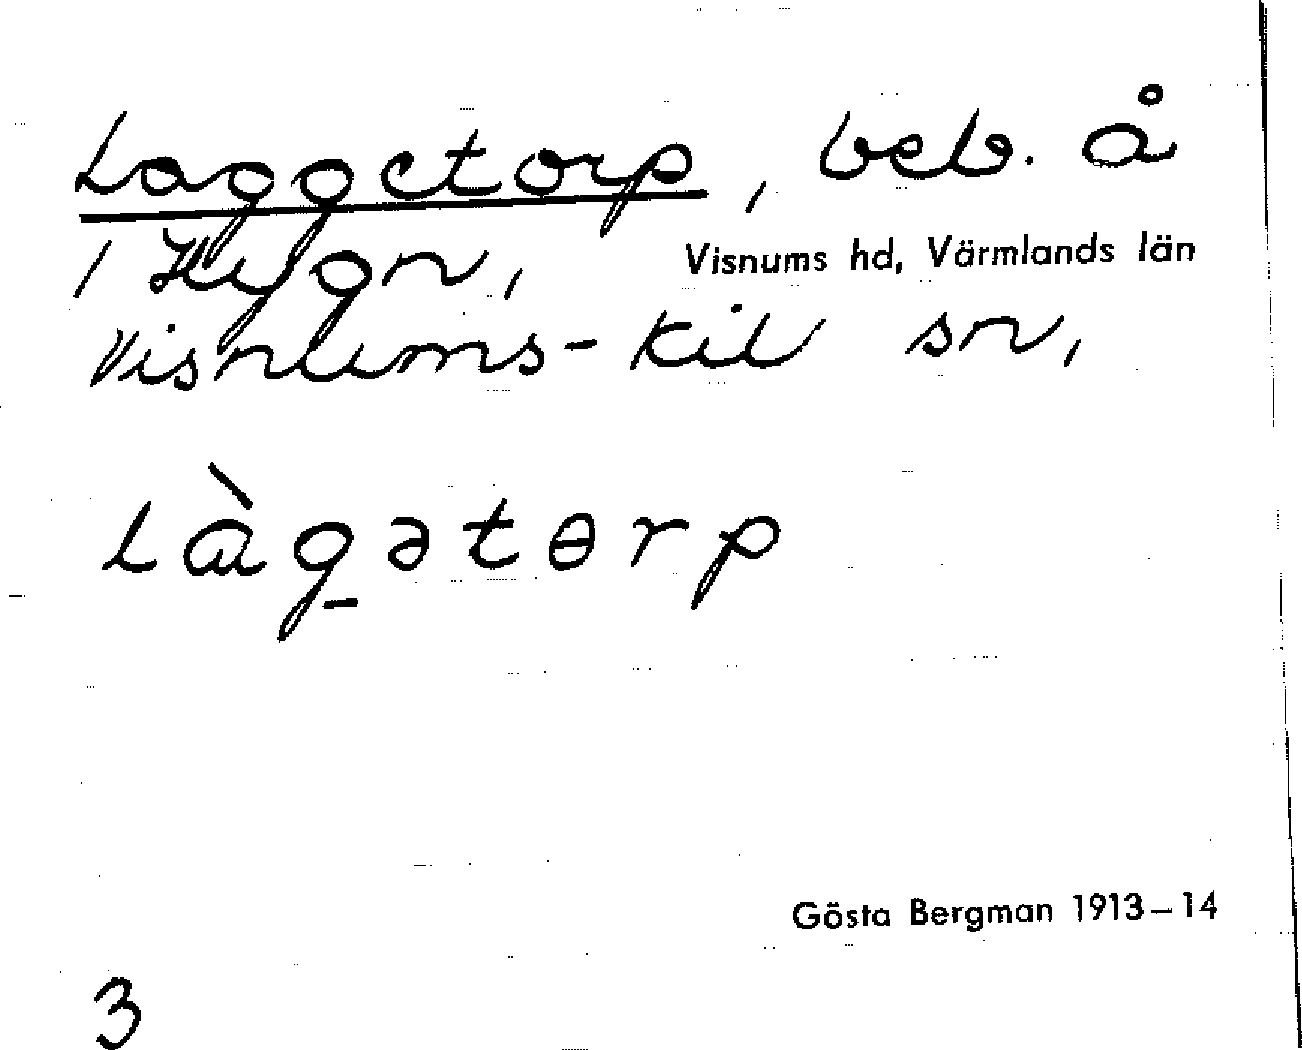 Laggetorp, beb. å
Visnums hd, Värmlands län
Visnums-Kil sn,
Làgətɵrp
Gösta Bergman 1913–14
3